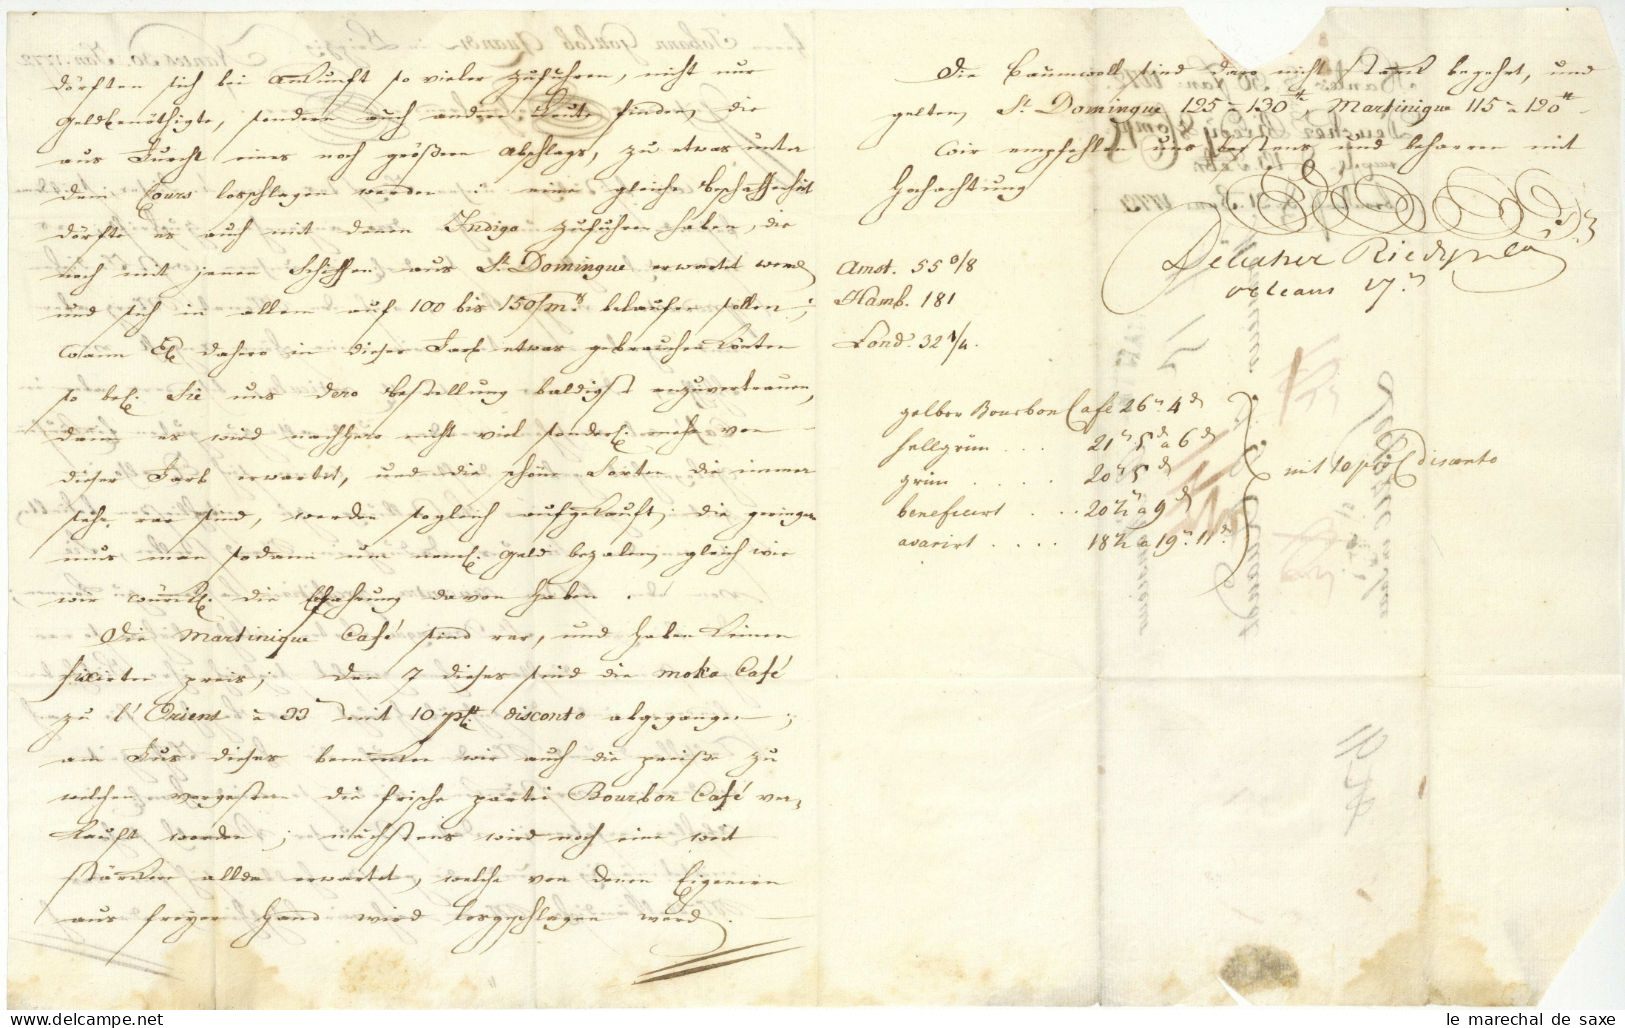 dörften sich bei Ankunft so vieler Zufuhren, nicht nur
Geldbenöthigte, sondern auch andere Leute finden, die
aus Furcht eines noch größern Abschlags, zu etwas unter
dem Cours losschlagen werden : eine gleiche Beschaffenheit
dörfte es auch mit denen Indigo Zufuhren haben, die
noch mit jenen Schiffen aus St. Domingue erwartet werd
und sich in allem auf 100 bis 150/m tt belaufen sollen ;
Wann dahero in dieser Farb etwas gebrauchen könten
so bel. Sie uns dero Bestellung baldigst anzuvertrauen,
dann es wird nachhero nicht viel sonderl. mehr von
dieser Farb erwartet, und die schöne Sorten die immer
sehr rar sind, werden sogleich aufgekauft; die geringen
mus man sodann um neml. Geld bezalen, gleich wie
wir würkl. die Erfahrung davon haben .
Die Martinique Café sind rar, und haben keinen
fixirten preis; Den 7 dieses sind die moka Café
zu l'Orient à 33 s mit 10 p% disconto abgegangen ;
am Fus dieses bemerken wir auch die preiße zu
welchen vorgestern die frische partei Bourbon Café ver-
kauft worden ; nächstens wird noch eine weit
stärkere allda erwartet, welche von denen Eignern
aus freyer Hand wird losgeschlagen werd .
Die Baumwoll sind dato nicht stark begehrt, und
gelten, St. Domingue 125 à 130 tt, Martinique 115 à 120 tt -
Wir empfehlen uns bestens und beharren mit
Hochachtung
Deucher Riedy &
Orleans
Amst. 55 0/8
Hamb. 181
Lond. 32 1/4.
gelber Bourbon Café 26 s. 4 d
hellgrün . . . 21 s 5 d à 6 d
grün . . . . . 20 s 5 d
beneficirt . . . 20 à 9 d
avarirt . . . . 18 à 19 s. 11 d.
mit 10 p% disconto